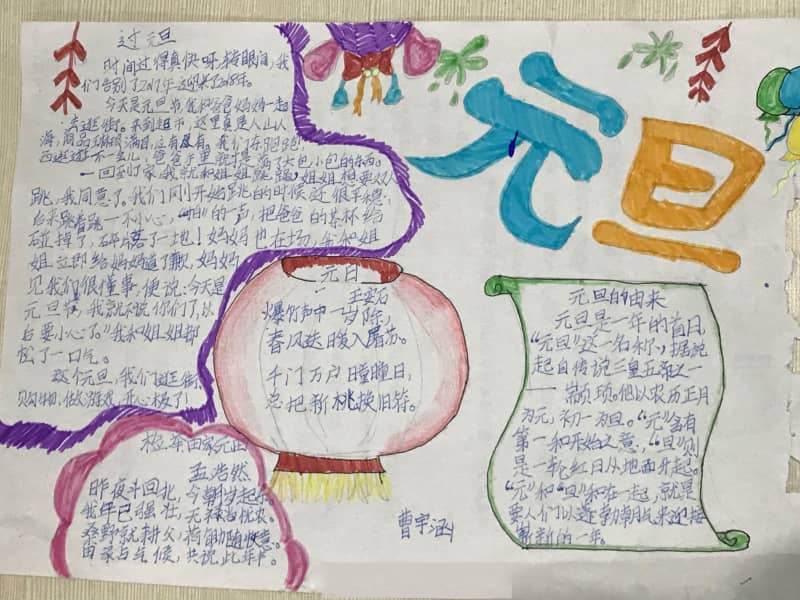 过元旦
时间过得真快呀,转眼间,我
们告别了2017年迎来了2018年。
今天是元旦节,我和爸爸妈妈一起
去逛街。来到超市,这里真是人山人
海,商品琳琅满目,应有尽有。我们东跑跑
西逛逛,不一会儿,爸爸手里就
了大包小包的东西。
一回到了家,我就和姐姐跳绳,姐姐想要双人
跳,我同意了。我们刚开始跳的时候还很平稳,
后来跳着跳一不小心,“啪”的一声,把爸爸的茶杯给
碰掉了,碎片落了一地!妈妈也在场,我和姐
姐立即给妈妈道了歉,妈妈
见我们很懂事,便说:今天是
元旦节,我就不说你们了,以
后要小心了。”我和姐姐都
松了一口气。
这个元旦,我们逛街
购物,做游戏,开心极了!
元旦
元日
王安石
爆竹声中一岁除,
春风送日暖入屠苏。
千门万户曈曈日,
总把新桃换旧符。
元旦的由来
元旦是一年的首日,
“元旦”这一名称,据说
起自传说三皇五帝之一
——颛顼。他以农历正月
为元,初一为旦。“元”含有
第一和开始之意,“旦”则
是一轮红日从地面升起。
“元”和“旦”和在一起,就是
要人们以蓬勃朝气来迎接
崭新的一年。
田家元日
孟浩然
昨夜斗回北,今朝岁起东
我年已强壮,无禄尚忧农。
桑野就耕父,荷锄随牧童。
田家占气候,共说此年丰。
曹宇涵